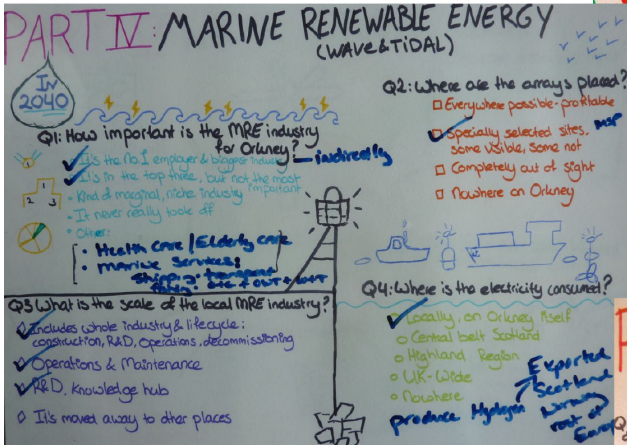 PART IV: MARINE RENEWABLE ENERGY
(WAVE & TIDAL)
In
2040
Q1: How important is the MRE industry
for Orkney?
It's the No.1 employer & biggest industry
- indirectly
It's in the top three, but not the most
important
• Kind of marginal, niche industry
• It never really took off
• Other:
1
2 3
• Health care / Elderly care
• Marine services:
shipping, transport
Q2: Where are the arrays placed?
Everywhere possible - profitable
Specially selected sites, MSP
some visible, some not
Completely out of sight
Nowhere on Orkney
Q3 What is the scale of the local MRE industry?
Includes whole industry & lifecycle:
construction, R&D, operations, decommissioning
Operations & Maintenance
R&D, Knowledge hub
It's moved away to other places
Q4: Where is the electricity consumed?
Locally, on Orkney itself
Central belt Scotland
Highland Region
UK-Wide
Nowhere
produce Hydrogen
Exported
Scotland
Norway
rest of
Europe